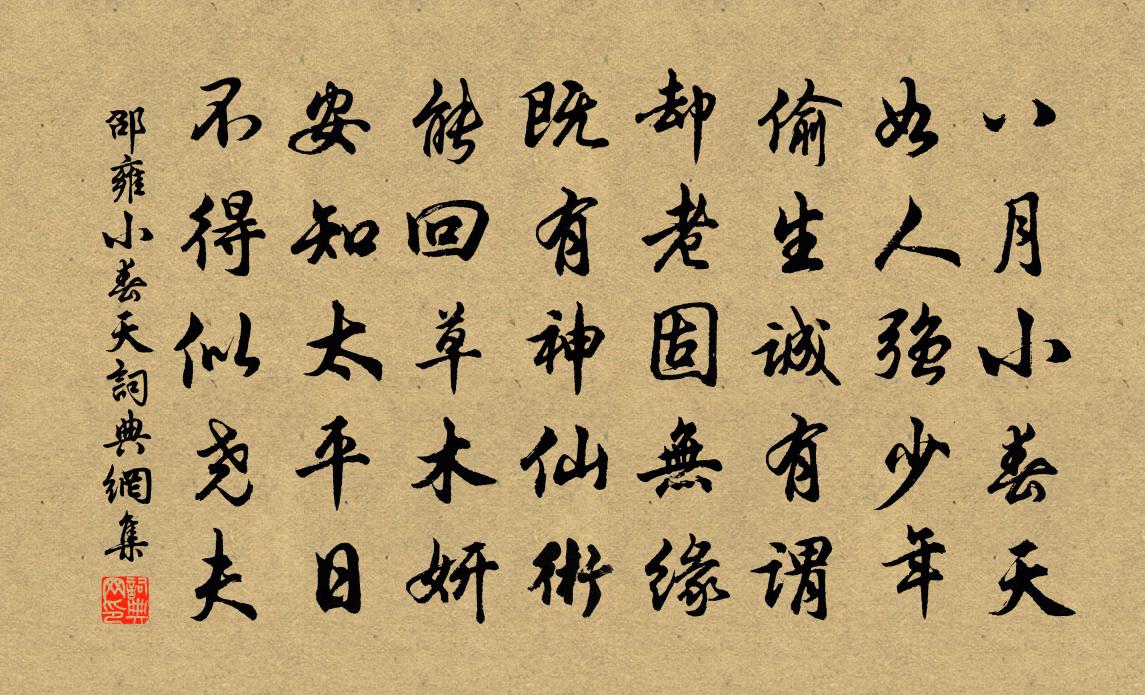 八月小春天
如人强少年
偷生誠有谓
却老固無缘
既有神仙術
能回草木妍
安知太平日
不得似尧夫
邵雍小春天詞典網集
詞典网印